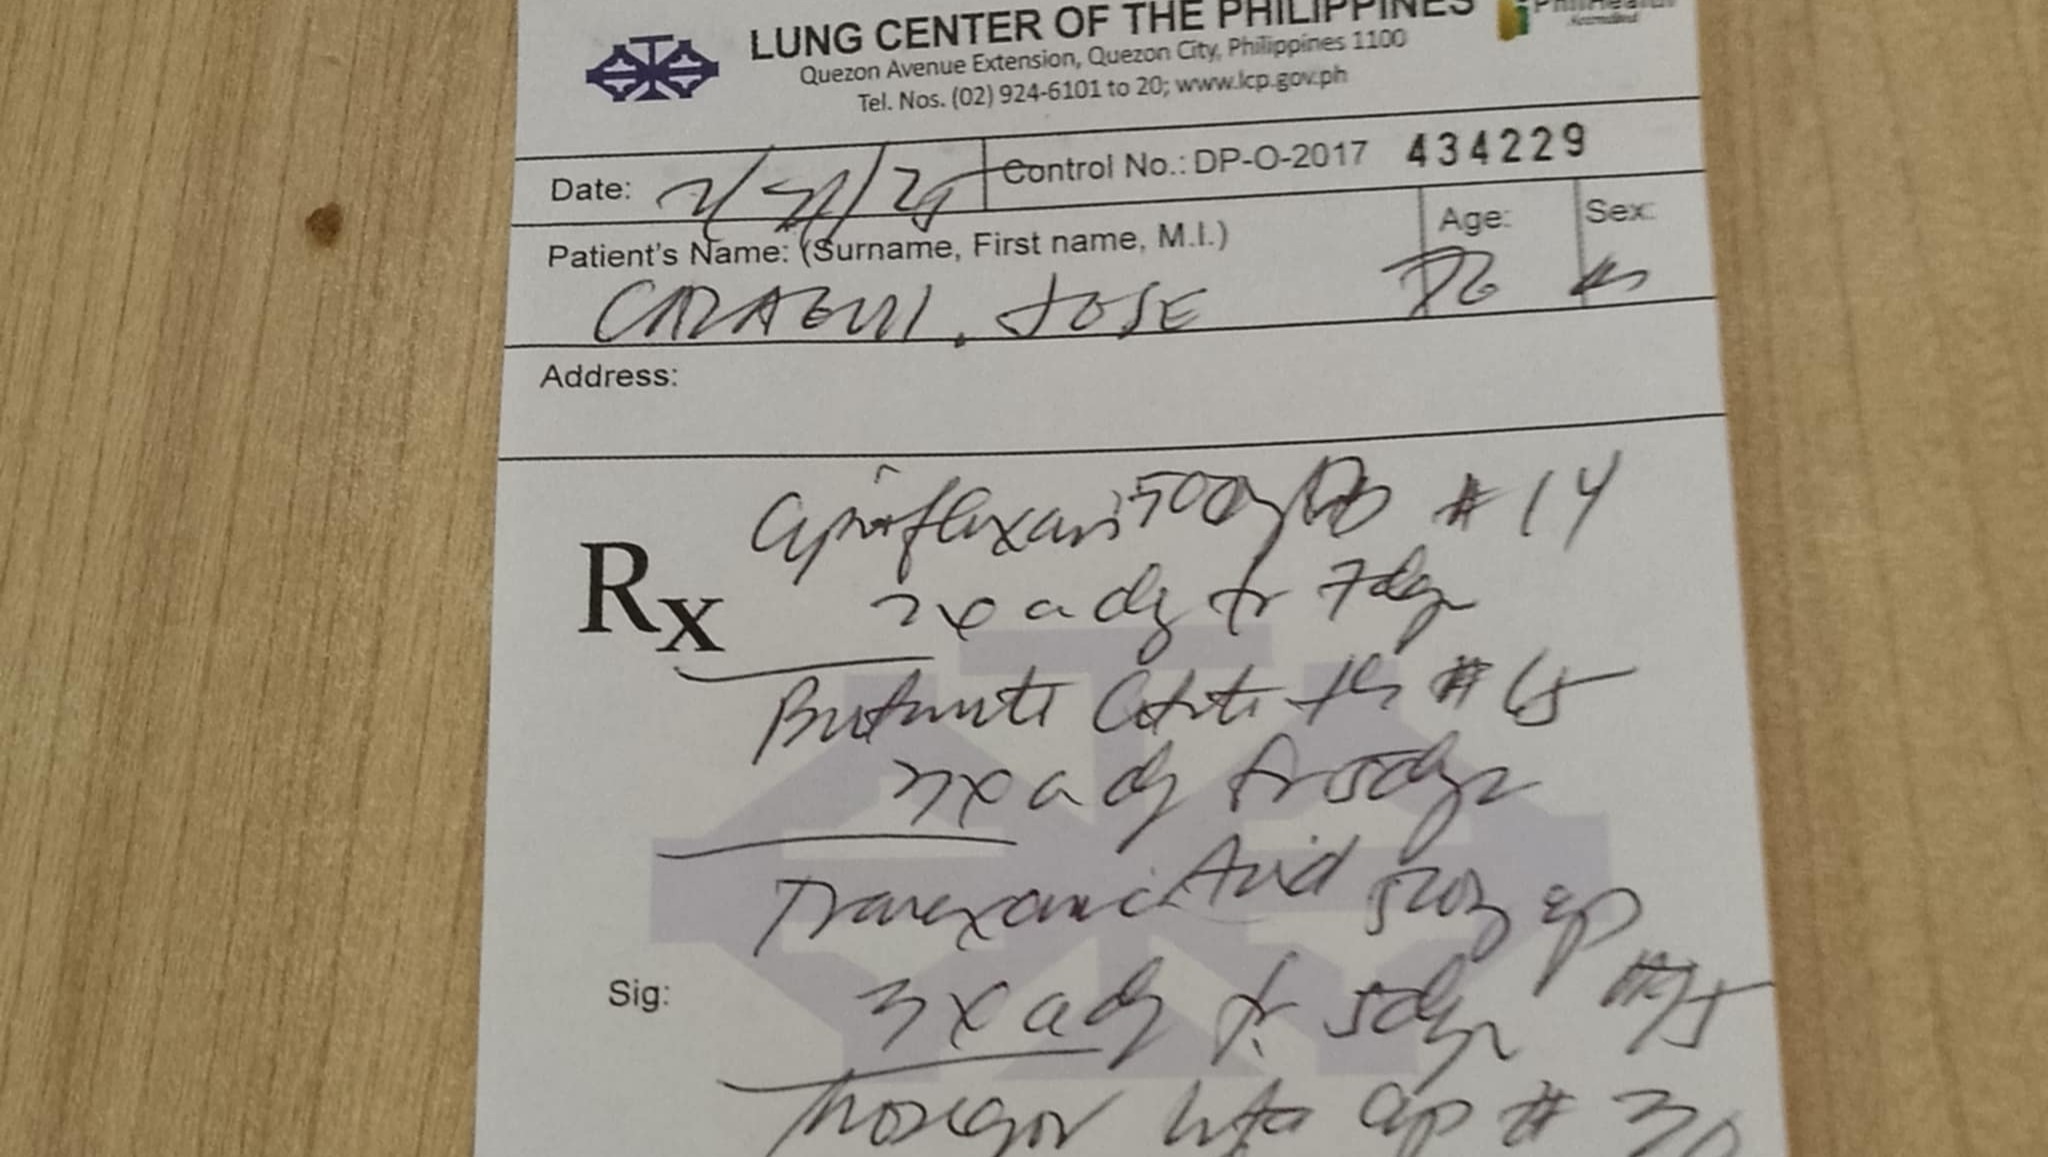 LUNG CENTER OF THE PHILIPPINES
Quezon Avenue Extension, Quezon City, Philippines 1100
Tel. Nos. (02) 924-6101 to 20; www.lcp.gov.ph
PhilHealth
Accredited
Date: Control No.: DP-O-2017 434229
Patient's Name: (Surname, First name, M.I.) Age: Sex:
JOSE
Address:
Rx
# 14
2x a day for 7 days
Butamirate Citrate tab #15
3x a day for 5 days
Tranexamic Acid 500mg cap
#15
Sig: 3x a day for 5 days
cap # 30